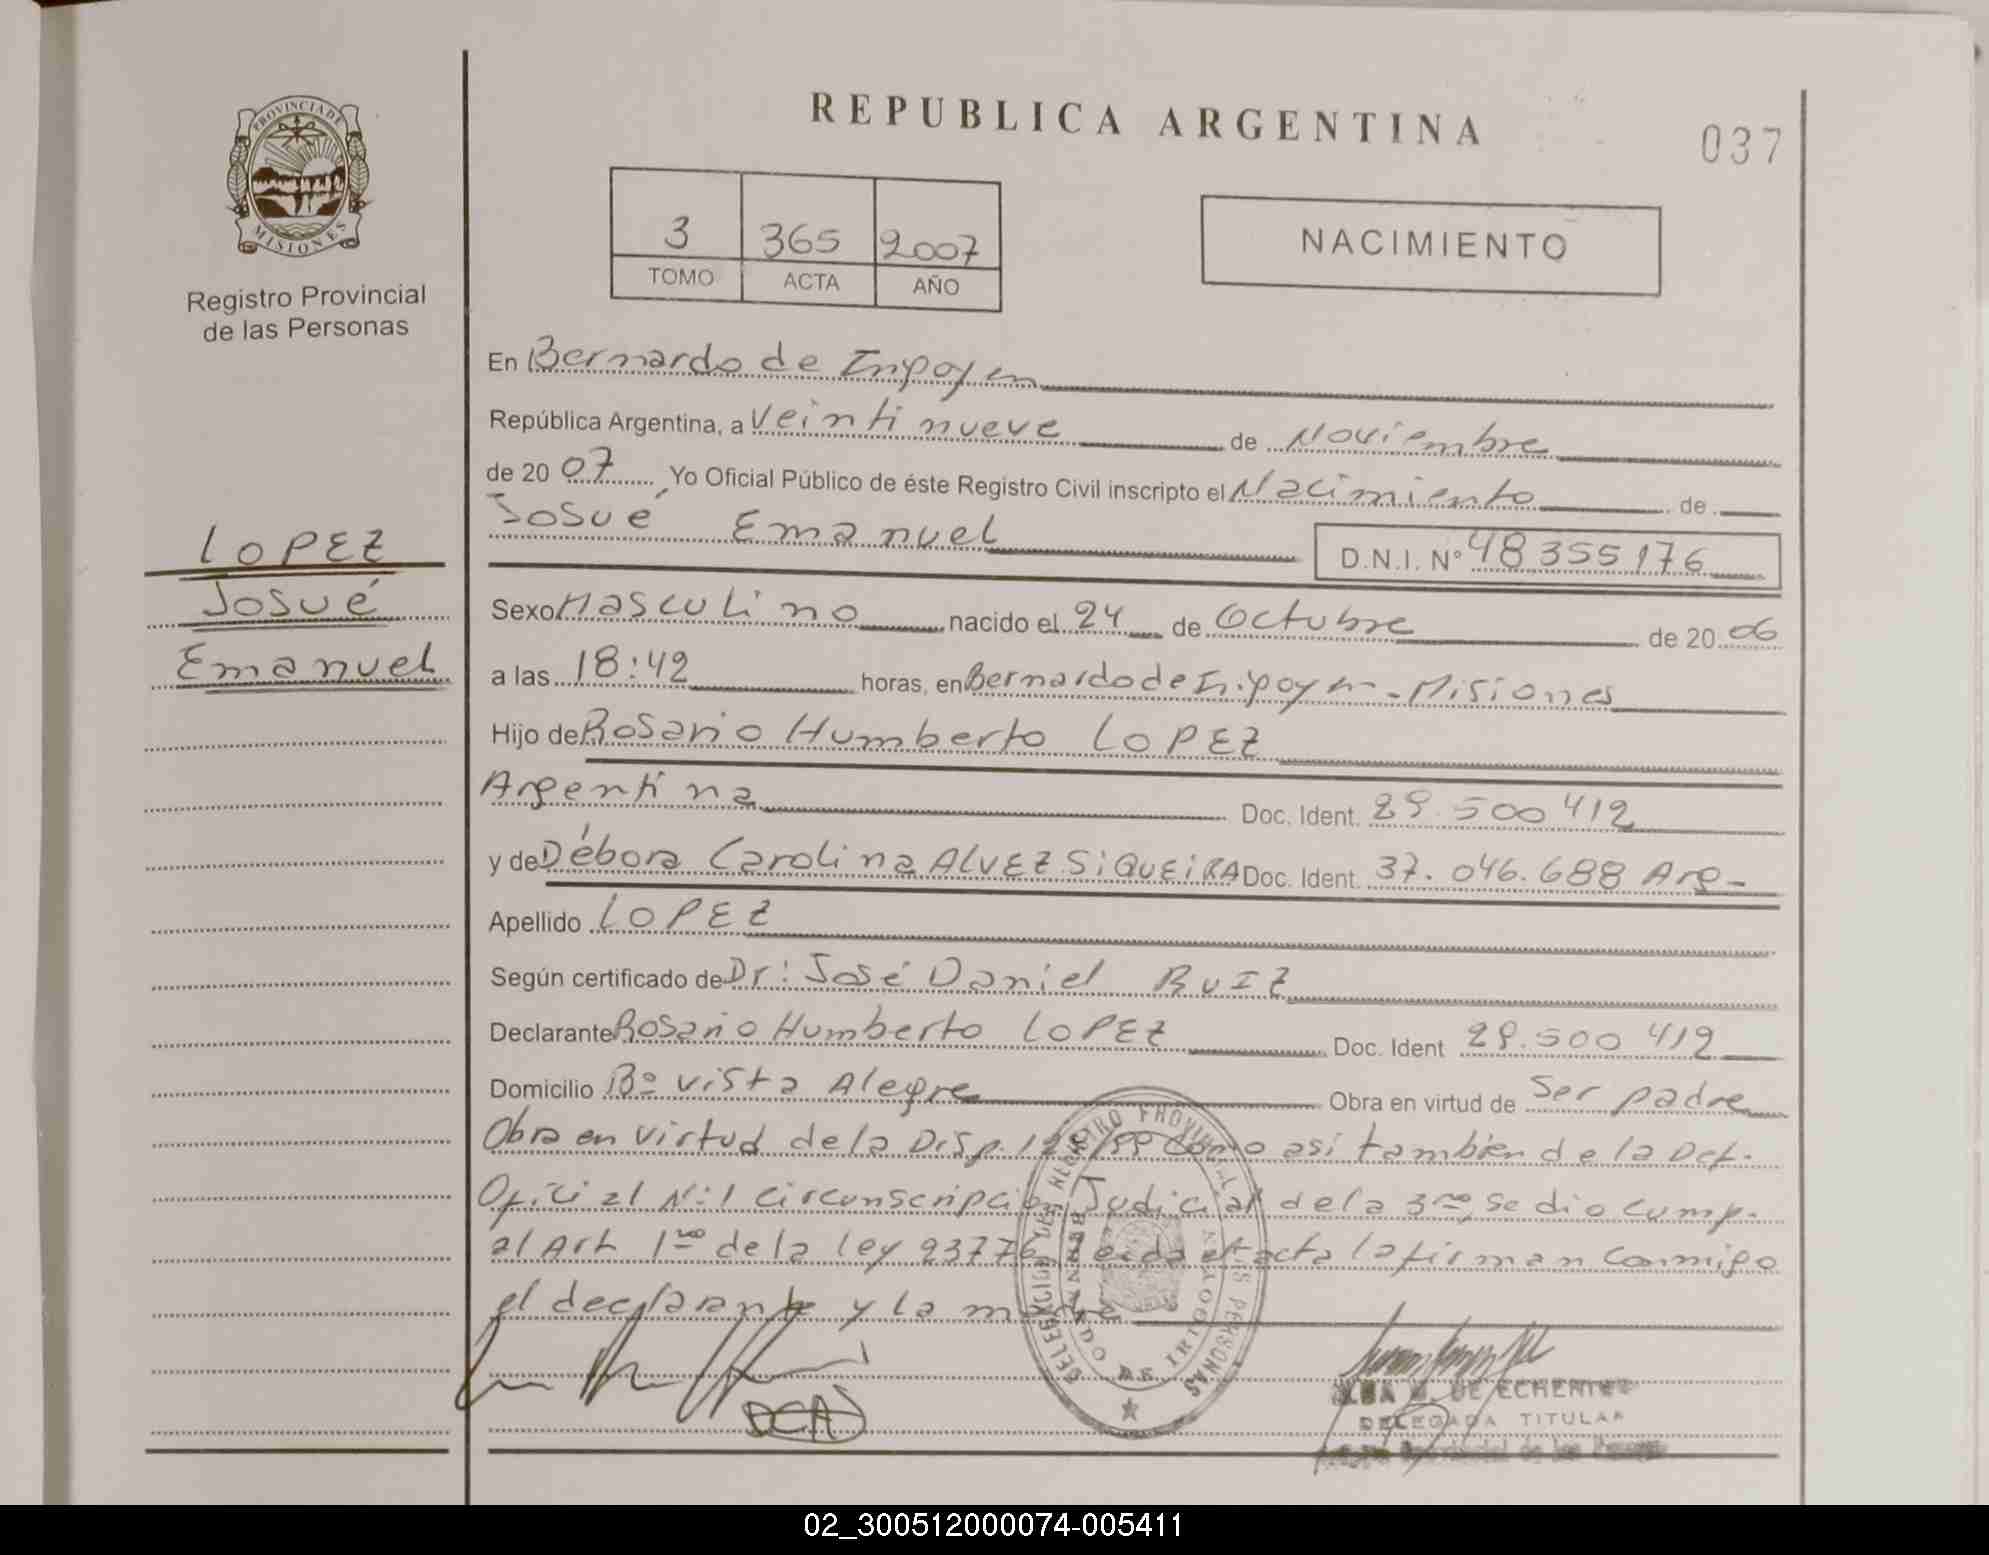 PROVINCIA DE
MISIONES
Registro Provincial
de las Personas
LOPEZ
Josué
Emanuel
REPUBLICA ARGENTINA
037
3 365 2007
TOMO ACTA AÑO
NACIMIENTO
En Bernardo de Irigoyen
República Argentina, a Veinti nueve de Noviembre
de 20 07 Yo Oficial Público de éste Registro Civil inscripto el Nacimiento de
Josué Emanuel
D.N.I. Nº 48355176
Sexo Masculino nacido el 24 de Octubre de 20 06
a las 18:42 horas, en Bernardo de Irigoyen - Misiones
Hijo de Rosario Humberto LOPEZ
Argentina Doc. Ident. 29.500 412
y de Débora Carolina ALVEZ SiQUEiRA Doc. Ident. 37.046.688 Arg-
Apellido LOPEZ
Según certificado de Dr: José Daniel RUIZ
Declarante Rosario Humberto LOPEZ Doc. Ident 29.500 412
Domicilio Bº vista Alegre Obra en virtud de Ser padre
Obra en virtud de la Disp. /99 como asi tambien de la Def.
Oficial Nº1 circunscripcion Judicial de la 3ra, se dio cump.
al Art 1ro de la ley 23776 Leida el acta la firman conmigo
el declarante y la madre
DELEGACION DEL REGISTRO PROVINCIAL DE LAS PERSONAS
BERNARDO DE IRIGOYEN
DE ECHENIQUE
DELEGADA TITULAR
Provincial de las Personas
02_300512000074-005411